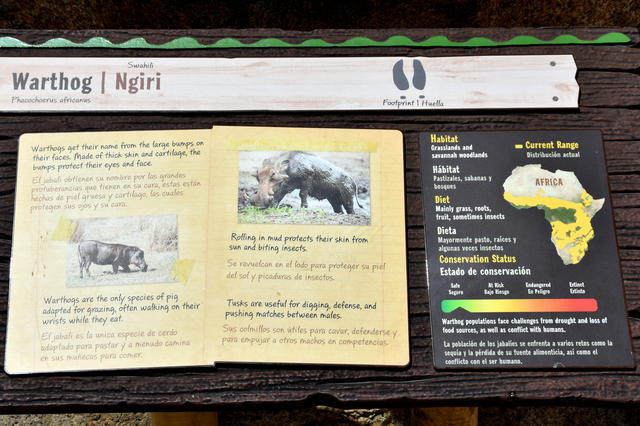 Swahili
Warthog | Ngiri
Phacochoerus africanus
Footprint | Huella
Warthogs get their name from the large bumps on
their faces. Made of thick skin and cartilage, the
bumps protect their eyes and face.
El jabalí obtienen su nombre por las grandes
protuberancias que tienen en su cara, estas están
hechas de piel gruesa y cartílago, las cuales
protegen sus ojos y su cara.
Warthogs are the only species of pig
adapted for grazing, often walking on their
wrists while they eat.
El jabalí es la unica especie de cerdo
adaptado para pastar y a menudo camina
en sus muñecas para comer.
Rolling in mud protects their skin from
sun and biting insects.
Se revuelcan en el lodo para proteger su piel
del sol y picaduras de insectos.
Tusks are useful for digging, defense, and
pushing matches between males.
Sus colmillos son útiles para cavar, defenderse y
para empujar a otros machos en competencias.
Habitat
Grasslands and
savannah woodlands
Hábitat
Pastizales, sabanas y
bosques
Diet
Mainly grass, roots,
fruit, sometimes insects
Dieta
Mayormente pasto, raíces y
algunas veces insectos
Current Range
Distribución actual
AFRICA
Conservation Status
Estado de conservación
Safe At Risk Endangered Extinct
Seguro Bajo Riesgo En Peligro Extinto
Warthog populations face challenges from drought and loss of
food sources, as well as conflict with humans.
La población de los jabalíes se enfrenta a varios retos como la
sequía y la pérdida de su fuente alimenticia, así como el
conflicto con el ser humano.